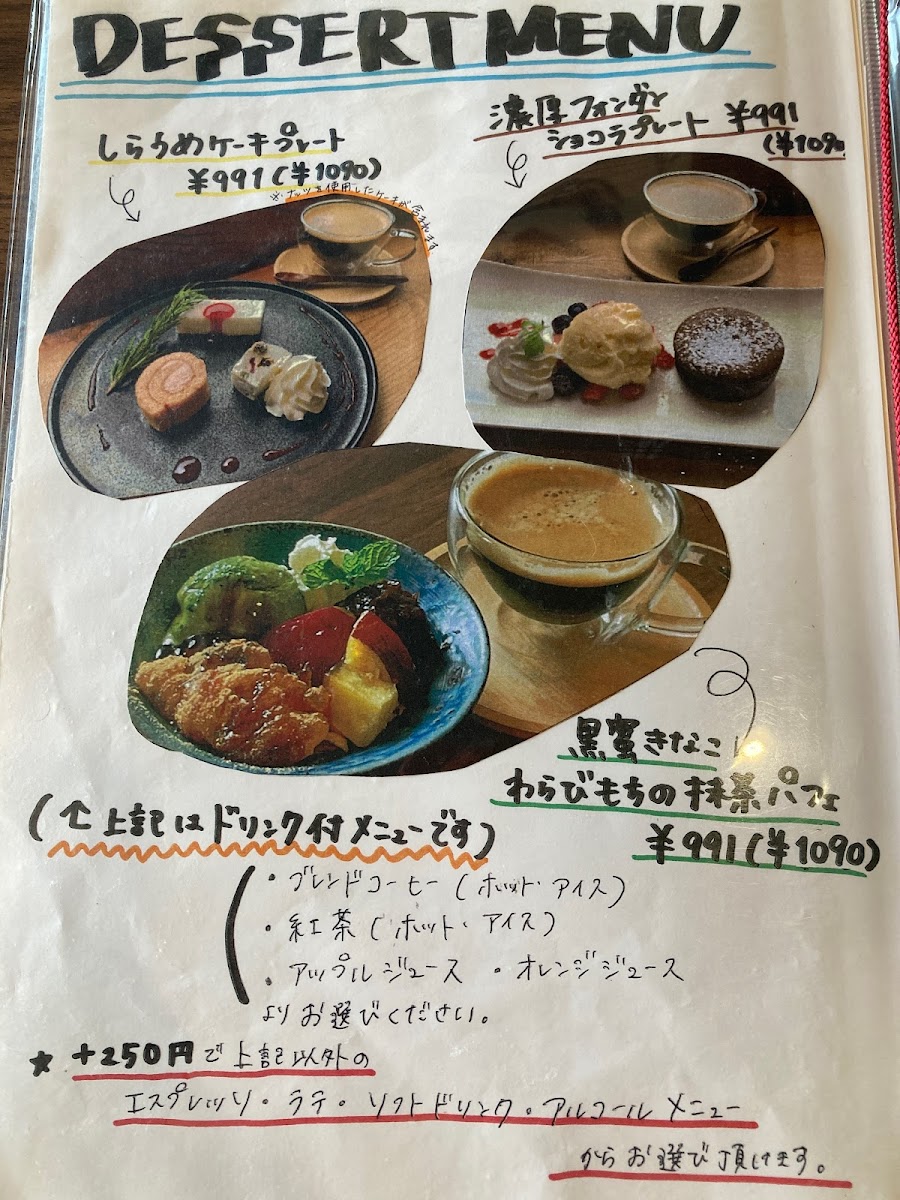 DESSERT MENU
しらうめケーキプレート
¥991(¥1090)
※ナッツを使用したケーキが含まれます
濃厚フォンダン
ショコラプレート ¥991
(¥1090
黒蜜きなこ
わらびもちの抹茶パフェ
¥991(¥1090)
(↑上記はドリンク付メニューです)
・ブレンドコーヒー(ホット・アイス)
・紅茶(ホット・アイス)
・アップルジュース ・オレンジジュース
よりお選びください。
★ +250円で上記以外の
エスプレッソ・ラテ・ソフトドリンク・アルコールメニュー
からお選び頂けます。